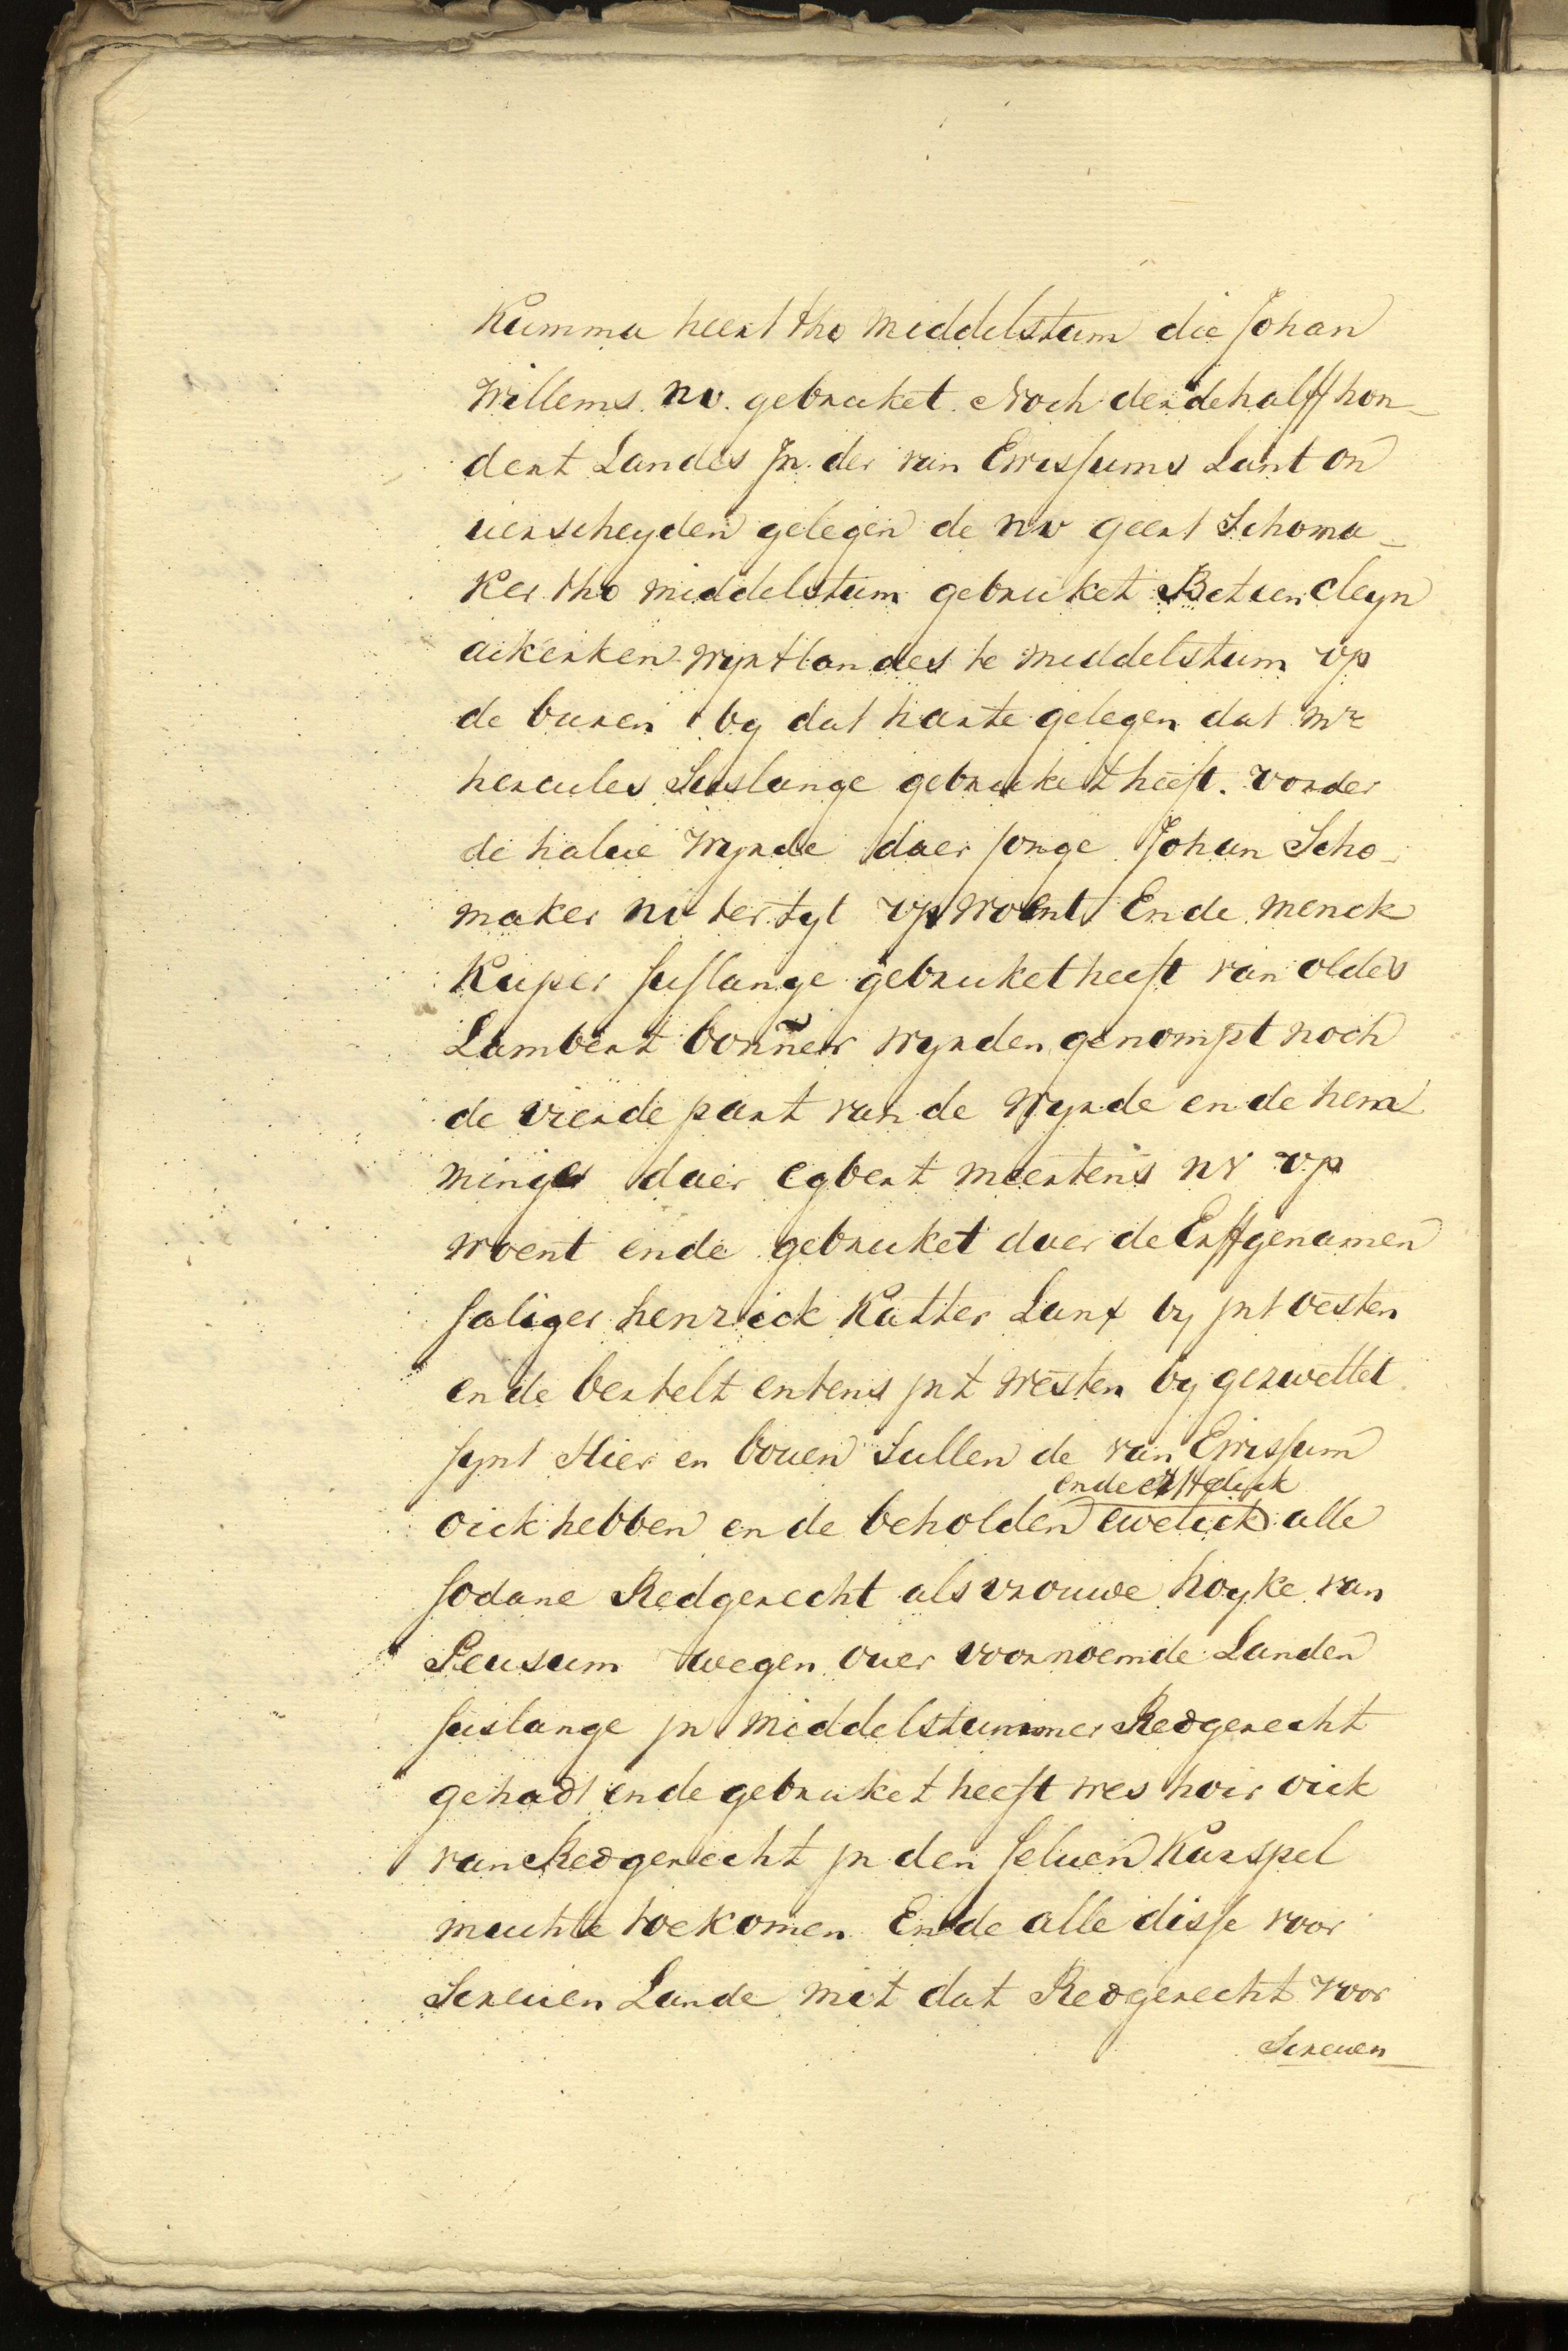 Kumma heert tho Middelstum die Johan
Willems. nv. gebruket. Noch derdehalff hon-
dert Landes Jn der van Ewissums Lant on
uerscheyden gelegen de nv geert Schoma-
Ker tho middelstum gebruket Betuen cleyn
ackerken wyrtlandes te middelstum vp
de buren by dat harte gelegen dat mr
hercules Suslange gebruket heeft. vorder
de halue Wyrde daer Jonge Johan Scho-
maker nv ter tyt vp woent Ende Menck
Kuper suslange gebruket heeft van oldes
Lambert bonner wyrden genompt noch
de vierde part van de Wyrde ende hem
minges daer egbert meertens nv vp
woent ende gebruket daer de Erffgenamen
saliger henrick Katter Lant by jnt oesten
ende bertelt entens jnt westen by gezwettet
synt Hier en bouen Sullen de van Ewissum
ende erfftelick
oick hebben ende beholden ewelick alle
sodane Redgerecht als vrouwe hoyke van
Peusum wegen ouer voornoemde Landen
suslange jn Middelstummer Redgerecht
gehadt ende gebruket heeft wes hoir oick
van Redgerecht jn den seluen Karspel
muchte toekomen Ende alle disse voor
Screuen Lande mit dat Redgerecht voor
Screuen